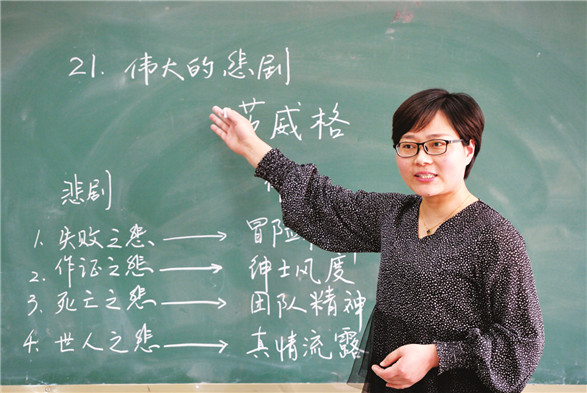 21. 伟大的悲剧
茨威格
悲剧
1. 失败之悲 → 冒险
2. 作证之悲 → 绅士风度
3. 死亡之悲 → 团队精神
4. 世人之悲 → 真情流露